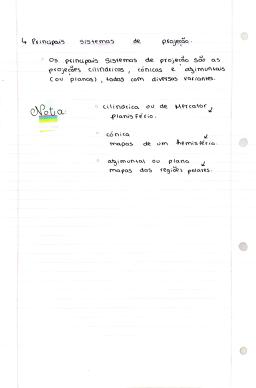 ↳ Principais sistemas de projeção.
Os principais sistemas de projeção são as
projeções cilíndricas, cónicas e azimuntais
(ou planas), todas com diversas variantes.
Nota:
◦ cilíndrica ou de Mercator ↙
planisfério.
◦ cónica ↙
mapas de um hemisfério.
◦ azimuntal ou plana ↙
mapas das regiões polares.